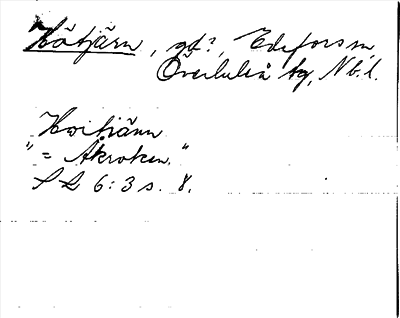 Håtjärn, gd?, Edefors sn,
Överluleå tg, Nb.l.
Hoitjänn
"= Åkroken"
SL 6:3 s. 8.